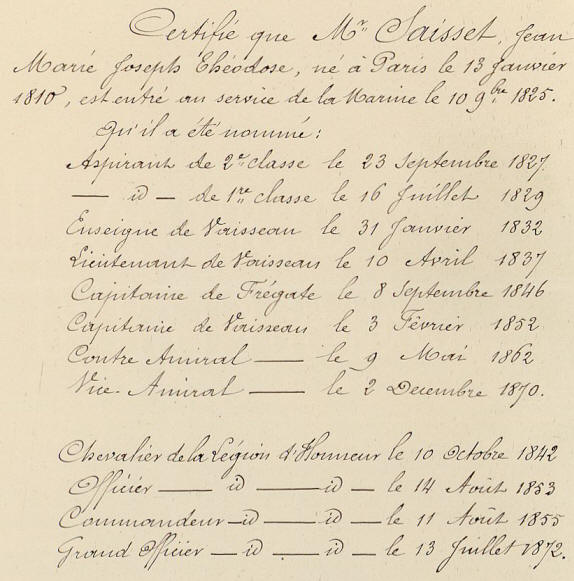 Certifié que Mr Saisset, Jean
Marie Joseph Théodose, né à Paris le 13 Janvier
1810, est entré au service de la Marine le 10 9bre 1825.
Qu'il a été nommé :
Aspirant de 2e classe le 23 Septembre 1827.
— id — de 1re classe le 16 Juillet 1829
Enseigne de Vaisseau le 31 Janvier 1832
Lieutenant de Vaisseau le 10 Avril 1837
Capitaine de Frégate le 8 Septembre 1846
Capitaine de Vaisseau le 3 Février 1852
Contre Amiral — le 9 Mai 1862
Vice-Amiral — le 2 Decembre 1870.
Chevalier de la Légion d'Honneur le 10 Octobre 1842
Officier — id — id — le 14 Août 1853
Commandeur — id — id — le 11 Août 1855
Grand Officier — id — id — le 13 Juillet 1872.